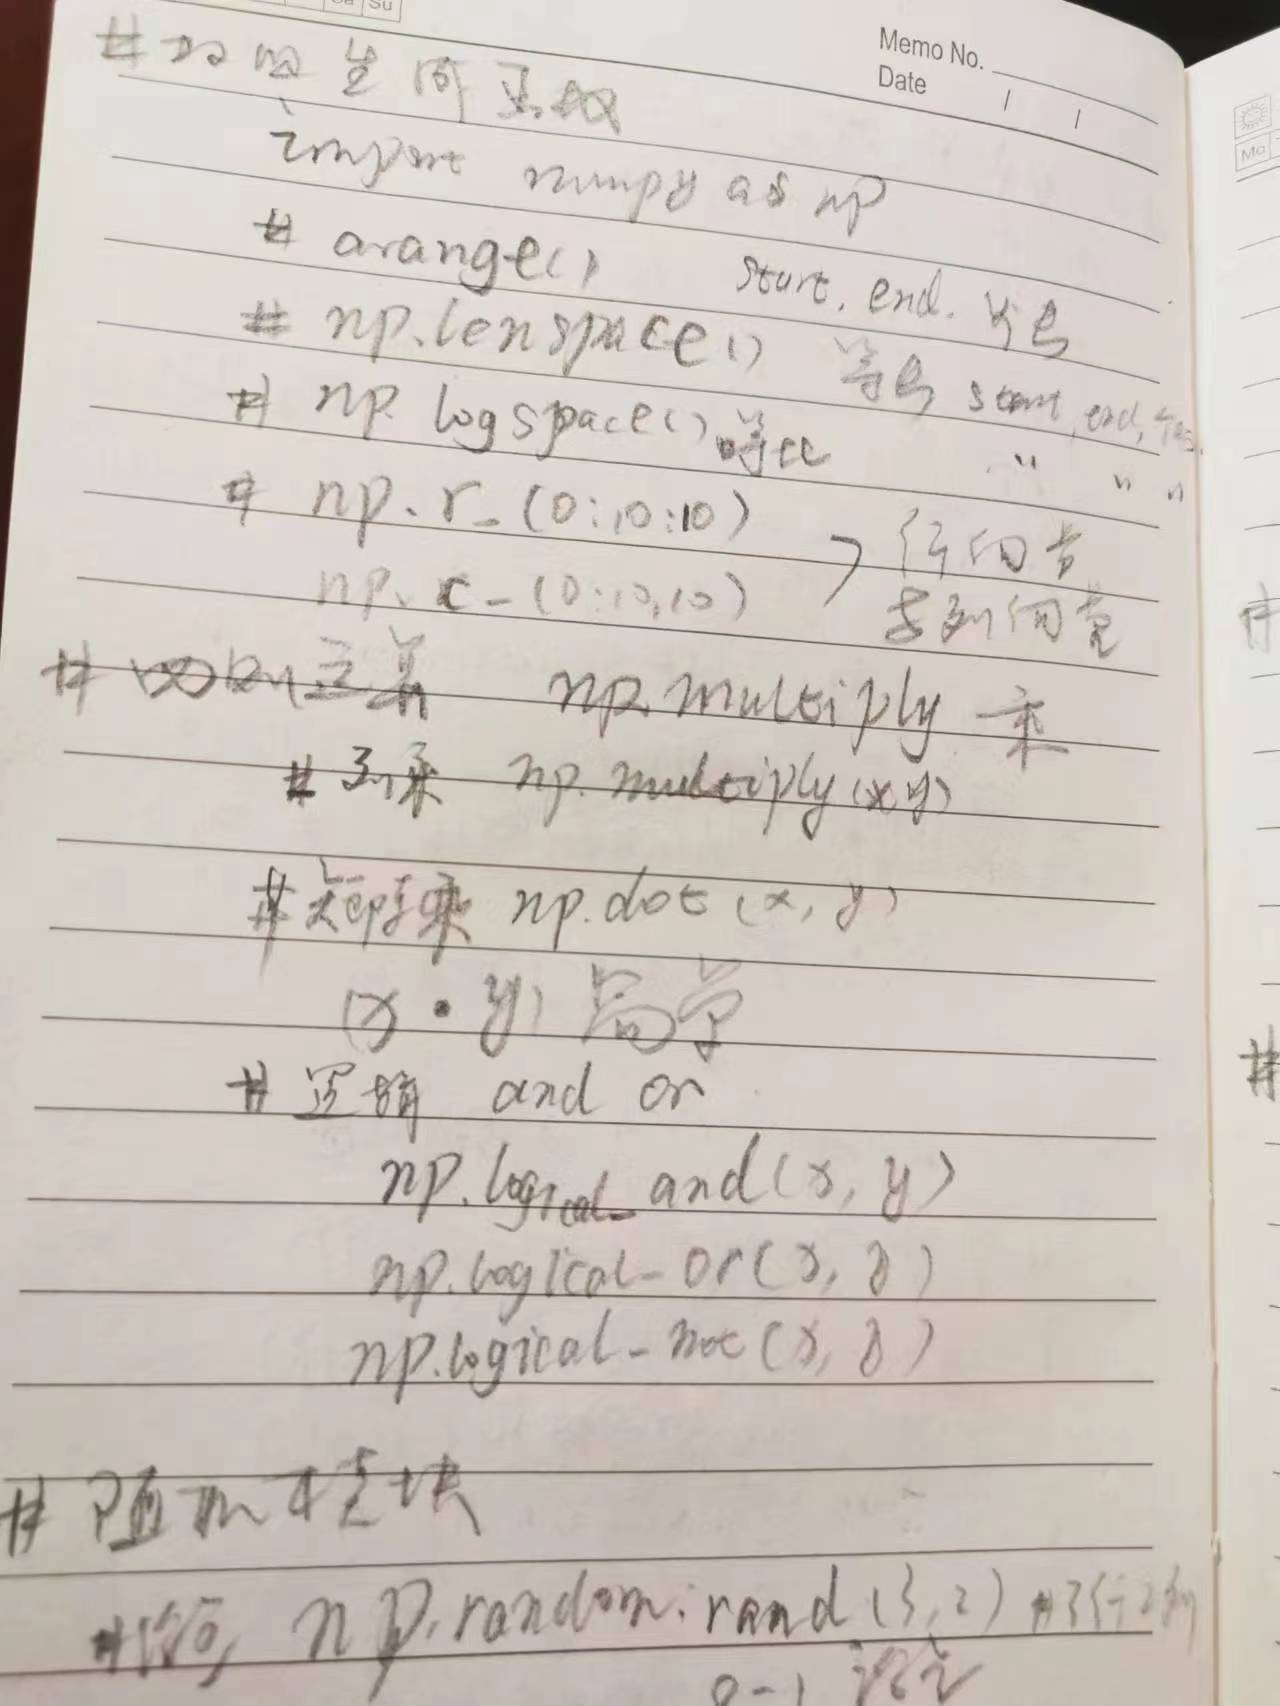 Sa Su
Memo No.
Date / /
Mo
# 生 函数
import numpy as np
# arange() start. end. 步长
# np.lenspace() 等差 start, end,
# np. logspace() 等比 " " "
# np. r_(0:10:10) 行向量
np. c_(0:10,10) 列向量
# 四则 np.multiply 乘
# 乘 np.multiply(x,y)
# 矩阵乘 np.dot(x, y)
(x · y)
# 逻辑 and or
np.logical_and(x, y)
np.logical_or(x, y)
np.logical_not(x, y)
# 随机模块
# np.random.rand(3,2) #3行2列
0-1